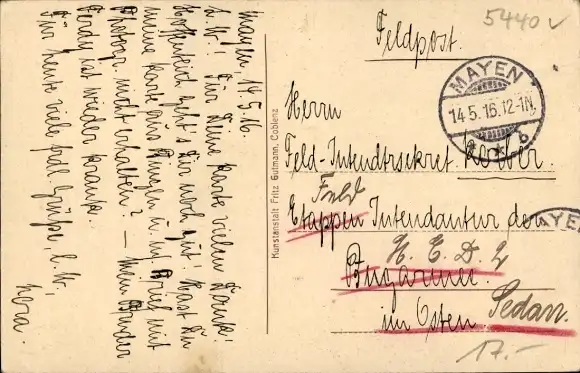 Mayen, 14.5.16.
L. W.! Für Deine Karte vielen Dank!
Hoffentlich geht's Dir noch gut. Hast Du
meine Karte aus Bingen u. m. Brief mit
Photogr. nicht erhalten? — Mein Bruder
Ferdy ist wieder krank.
Für heute viele hrzl. Grüße, l. W.,
Kunstanstalt Fritz Gutmann, Coblenz
5440 v
Feldpost.
MAYEN
14.5.16.12-1N.
* b
Herrn
Feld-Intendtrsekret. Korber.
Feld
Etappen Intendantur der
MAYEN
H. E. D. 2
Bugarmee.
im Osten Sedan.
17.-